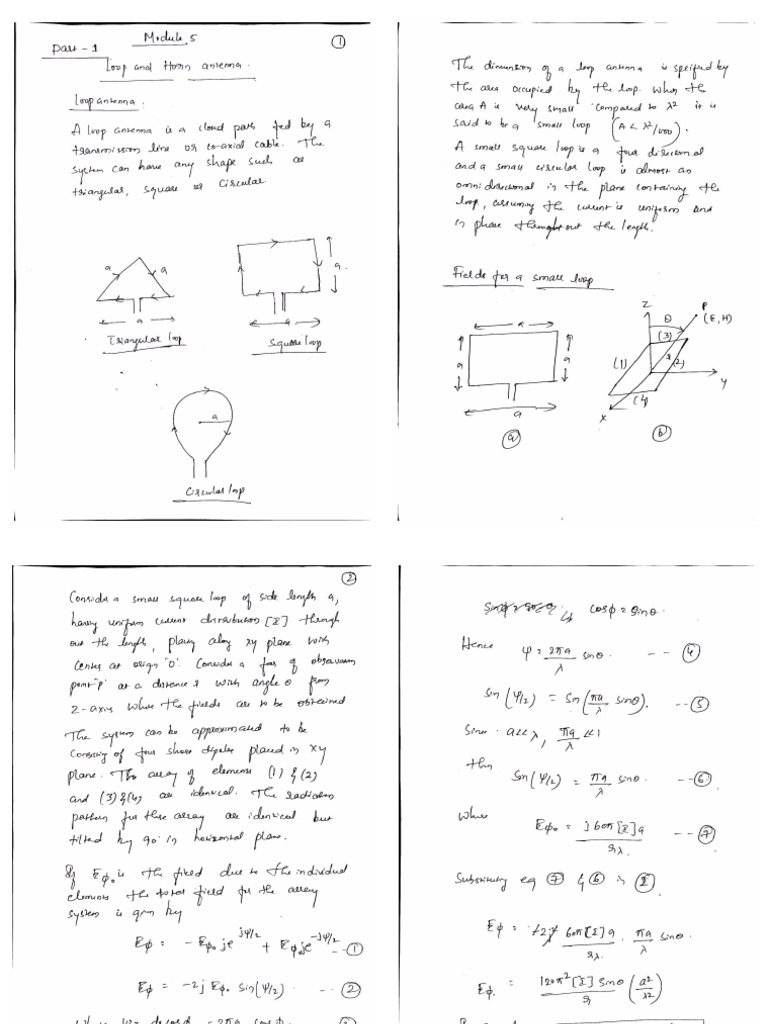 Module 5
①
Part - 1
Loop and Horn antenna.
Loop antenna.
A loop antenna is a closed path fed by a
transmission line or co-axial cable. The
system can have any shape such as
triangular, square or circular
a
a
a
Triangular loop
a
a
Square loop
a
Circular loop
The dimension of a loop antenna is specified by
the area occupied by the loop. When the
area A is very small compared to λ² it is
said to be a small loop (A < λ²/100).
A small square loop is a four directional
and a small circular loop is almost an
omnidirectional in the plane containing the
loop, assuming the current is uniform and
in phase throughout the length.
Fields for a small loop
a
a
a
a
ⓐ
Z
θ
P
(E, H)
(3)
(1)
r
(2)
y
(4)
x
ⓑ
②
Consider a small square loop of side length a,
having uniform current distribution [I] through
out the length, placing along xy plane with
center at origin 'O'. Consider a far of observation
point 'p' at a distance r with angle θ from
z-axis where the fields are to be obtained
The system can be approximated to be
consisting of four short dipoles placed in xy
plane. The array of elements (1) & (2)
and (3) & (4) are identical. The radiation
pattern for these array are identical but
tilted by 90° in horizontal plane.
If Eφ₀ is the field due to the individual
elements the total field for the array
system is given by
Eφ = - Eφ₀ e^jψ/2 + Eφ₀ e^-jψ/2 -- ①
Eφ = -2j Eφ₀ sin(ψ/2) -- ②
cosφ = sinθ.
Hence ψ = 2πa/λ sinθ -- ④
sin(ψ/2) = sin(πa/λ sinθ). -- ⑤
Since a<<λ, πa/λ <<1
then
sin(ψ/2) = πa/λ sinθ. -- ⑥
where
Eφ₀ = j60π[I]a/rλ -- ⑦
Substituting eq ⑦ & ⑥ in ②
Eφ = 60π[I]a/rλ . πa/λ sinθ.
Eφ = 120π²[I] sinθ/r (a²/λ²)